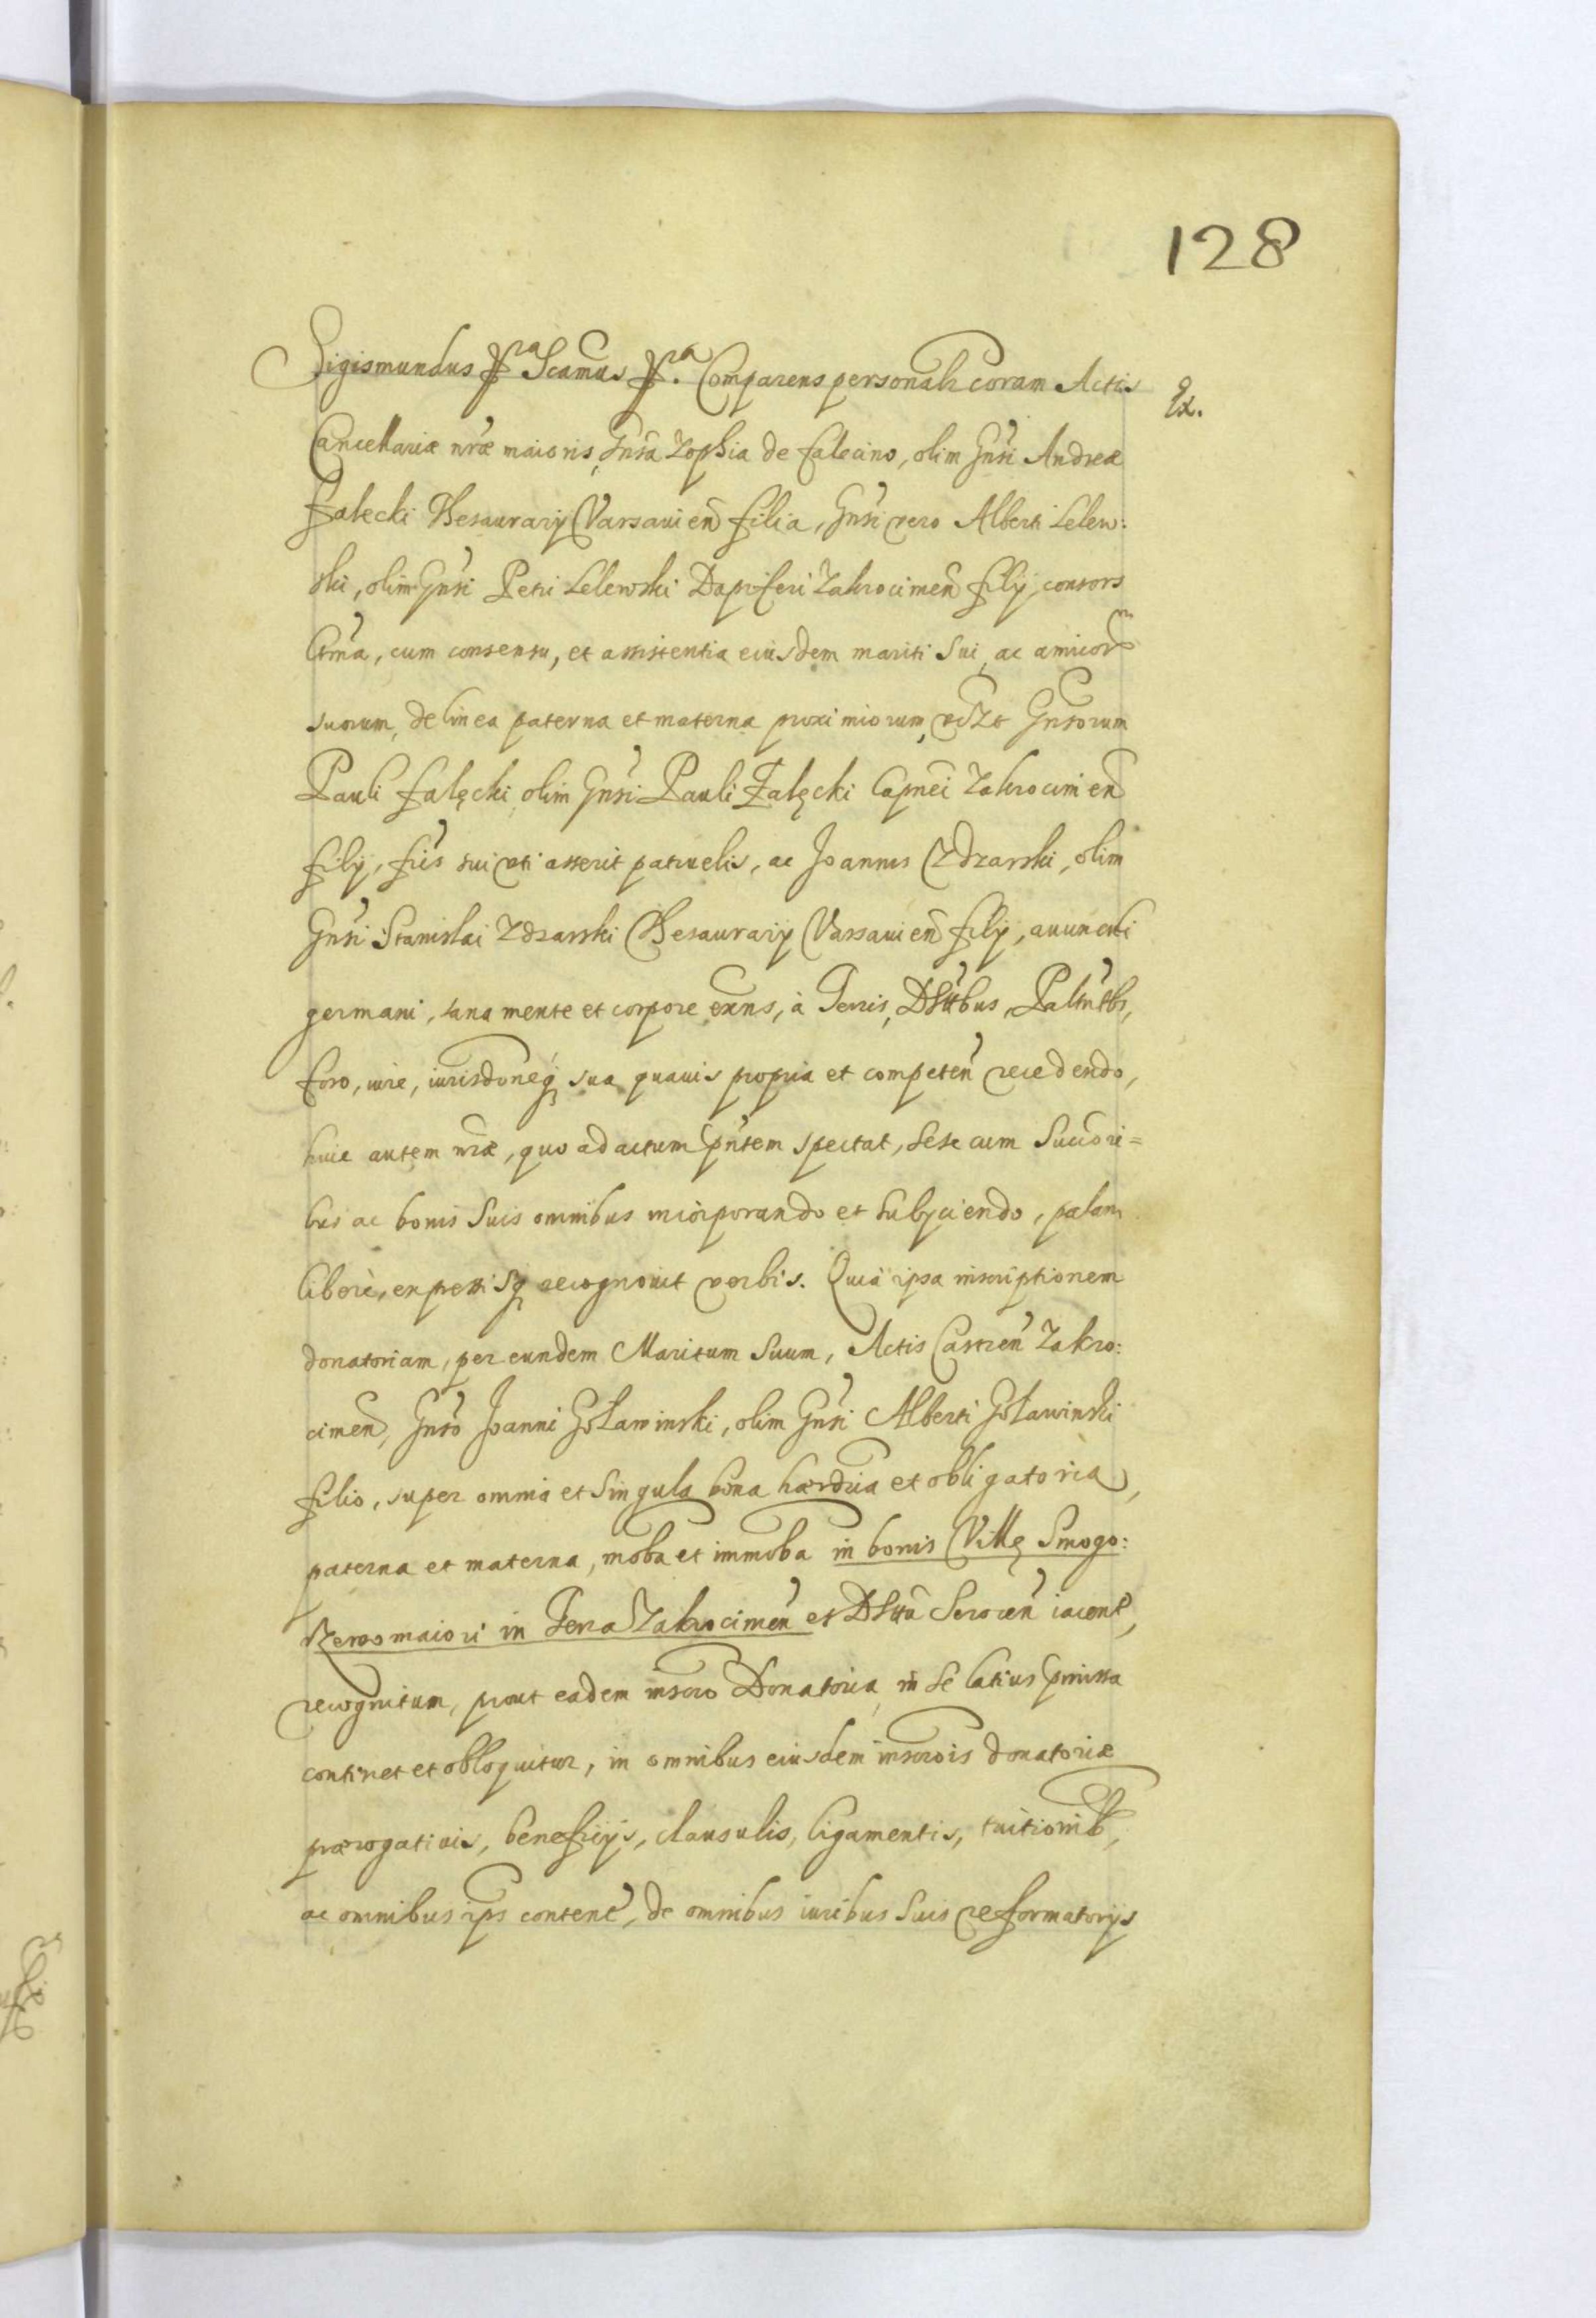 128
Sigismundus &ra Scamus &ra. Comparens personalr coram Actis
Ex.
Cancellariæ nræ maioris, Gnsa Zophia de falecino, olim Gnsi Andreæ
falecki Thesaurarij Varsauien filia, Gnsi vero Alberti Lelew:
ski, olim Gnsi Petri Lelewski Dapiferi Zakrocimen filij, consors
ltma, cum consensu, et assistentia eiusdem mariti sui, ac amicorm
suorum, de linea paterna et materna proximiorum, vdzt Gnsorum
Pauli falęcki, olim Gnsi Pauli Falęcki Capnei Zakrocimien
filij, fris sui uti asserit patruelis, ac Joannis Zdzarski, olim
Gnsi Stanislai Zdzarski Thesaurarij Varsauien filij, auunculi
germani, sana mente et corpore exns, à Terris, Dstibus, Paltntbs,
foro, iure, iurisdoneq sua quauis propria et competen recedendo,
huic autem nræ, quo ad actum pntem spectat, sese cum Succori=
bus ac bonis suis omnibus incorporando et subijciendo, palam
liberè, expressisq recognouit verbis. Quia ipsa inscriptionem
donatoriam, per eundem Maritum suum, Actis Castren Zakro:
cimen, Gnso Joanni Goławinski, olim Gnsi Alberti Goławinski
filio, super omnia et singula bona hærdria et obligatoria,
paterna et materna, moba et immoba in bonis Villę Smogo:
rzewo maiori in Terra Zakrocimen et Dstu Serocen iacent,
recognitum, prout eadem inscro Donatoria in se latius pmissa
continet et obloquitur, in omnibus eiusdem inscrois donatoriæ
prærogatiuis, beneficijs, clausulis, ligamentis, tuitionib,
ac omnibus ips content, de omnibus iuribus suis reformatorijs